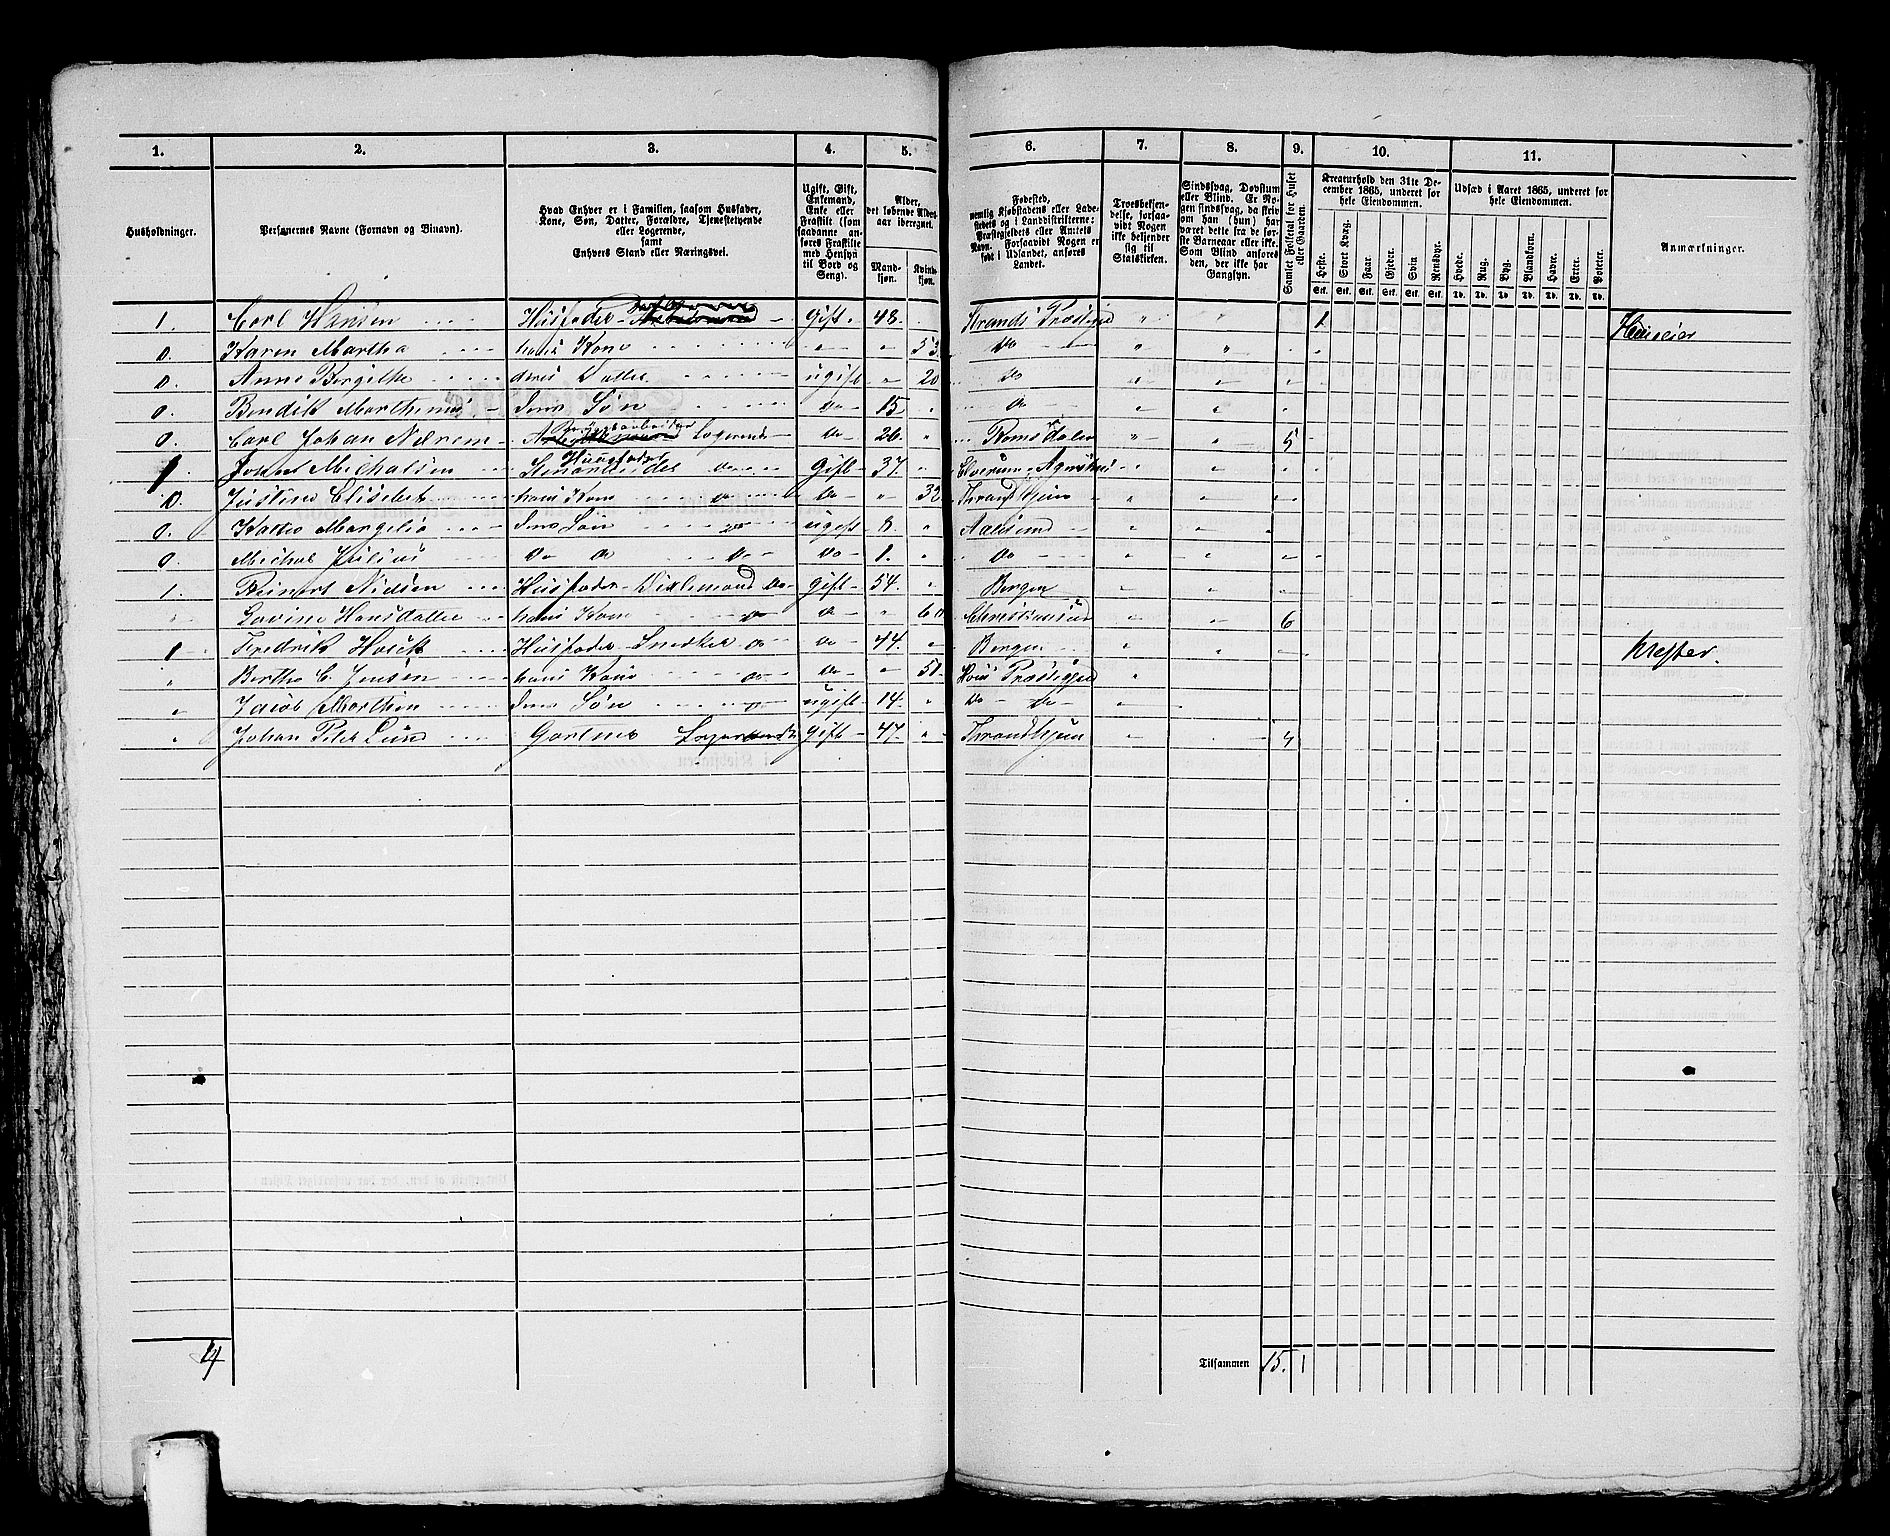 1. 2. 3. 4. 5. 6. 7. 8. 9. 10. 11.
Husholdninger.
Personernes Navne (Fornavn og Binavn).
Hvad Enhver er i Familien, saasom Husfader, Kone, Søn, Datter, Forældre, Tjenestetyende eller Logerende, samt Enhvers Stand eller Næringsvei.
Ugift, Gift, Enkemand, Enke eller Fraskilt (som saadanne anføres Fraskilte med Hensyn til Bord og Seng).
Alder, det løbende Alders-aar iberegnet.
Mandkjøn. Kvindekjøn.
Fødested, nemlig Kjøbstadens eller Ladestedets eller i Landdistrikterne: Præstegjeldets eller Amtets Navn. Forsaavidt Nogen er født i Udlandet, anføres Landet.
Troesbekjendelse, forsaavidt Nogen ikke bekjender sig til Statskirken.
Sindssvag, Døvstum eller Blind. Er Nogen sindssvag, da skriv om han (hun) har været dette fra de første Barneaar eller ikke. Som Blind ansøres den, der ikke har Gangsyn.
Samlet Folketal for Huset eller Gaarden.
Kreaturhold den 31te December 1865, underet for hele Eiendommen.
Heste. Stort Kvæg. Faar. Gjeder. Svin Rensdyr.
Stk. Stk. Stk. Stk. Stk. Stk.
Udsæd i Aaret 1865, underet for hele Eiendommen.
Hvede. Rug. Byg. Blandkorn. Havre. Erter. Poteter.
Td. Td. Td. Td. Td. Td. Td.
Anmærkninger.
1. Carl Hansen Husfader Gift 48. Strands Præstegjd " " 1 Huseier
0. Karen Martha hans Kone " " 53 Do " "
0. Anne Bergithe deres Datter ugift " 20 Do " "
0. Bendik Marthinus deres Søn Do 15 " Do " "
0. Carl Johan Nærem Logerende Do 26. " Romsdalen " " 5
1 Michalsen Husfader do Gift 37. " Elverum " "
0. Justine Elisebet hans Kone do Do " 32 Thrandhjem " "
0. deres Søn do ugift 8. " Aalesund " "
0. Michal Julius Do do do Do 1. " Do " "
1. Reinert Nielsen Husfader do Gift 54. " Bergen " "
" Hansdatter hans Kone do Do " 60 Christiansund " " 6
1 Fredrik Husfader Snedker do Do 44. " Bergen " " Krefter.
" Berthe C. Jensen hans Kone do Do " 51. Præstegjed "
" Jacob Marthin deres Søn do ugift 14. " Do Do "
" Johan Peter Lund Gartner Logerende Gift 47. " Thrandhjem " 4
4 Tilsammen 15. 1